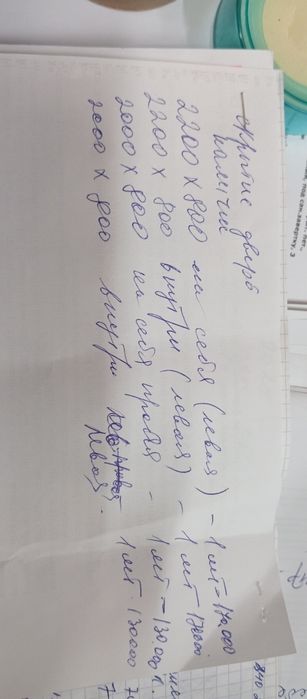 наличии дверь
2200 х 800 на себя (левая) - 1 шт = 170.000
2200 х 800 внутри (левая) - 1 шт
2000 х 800 на себя правая - 1 шт = 130.000
2000 х 800 внутри левая. 1 шт. 130000